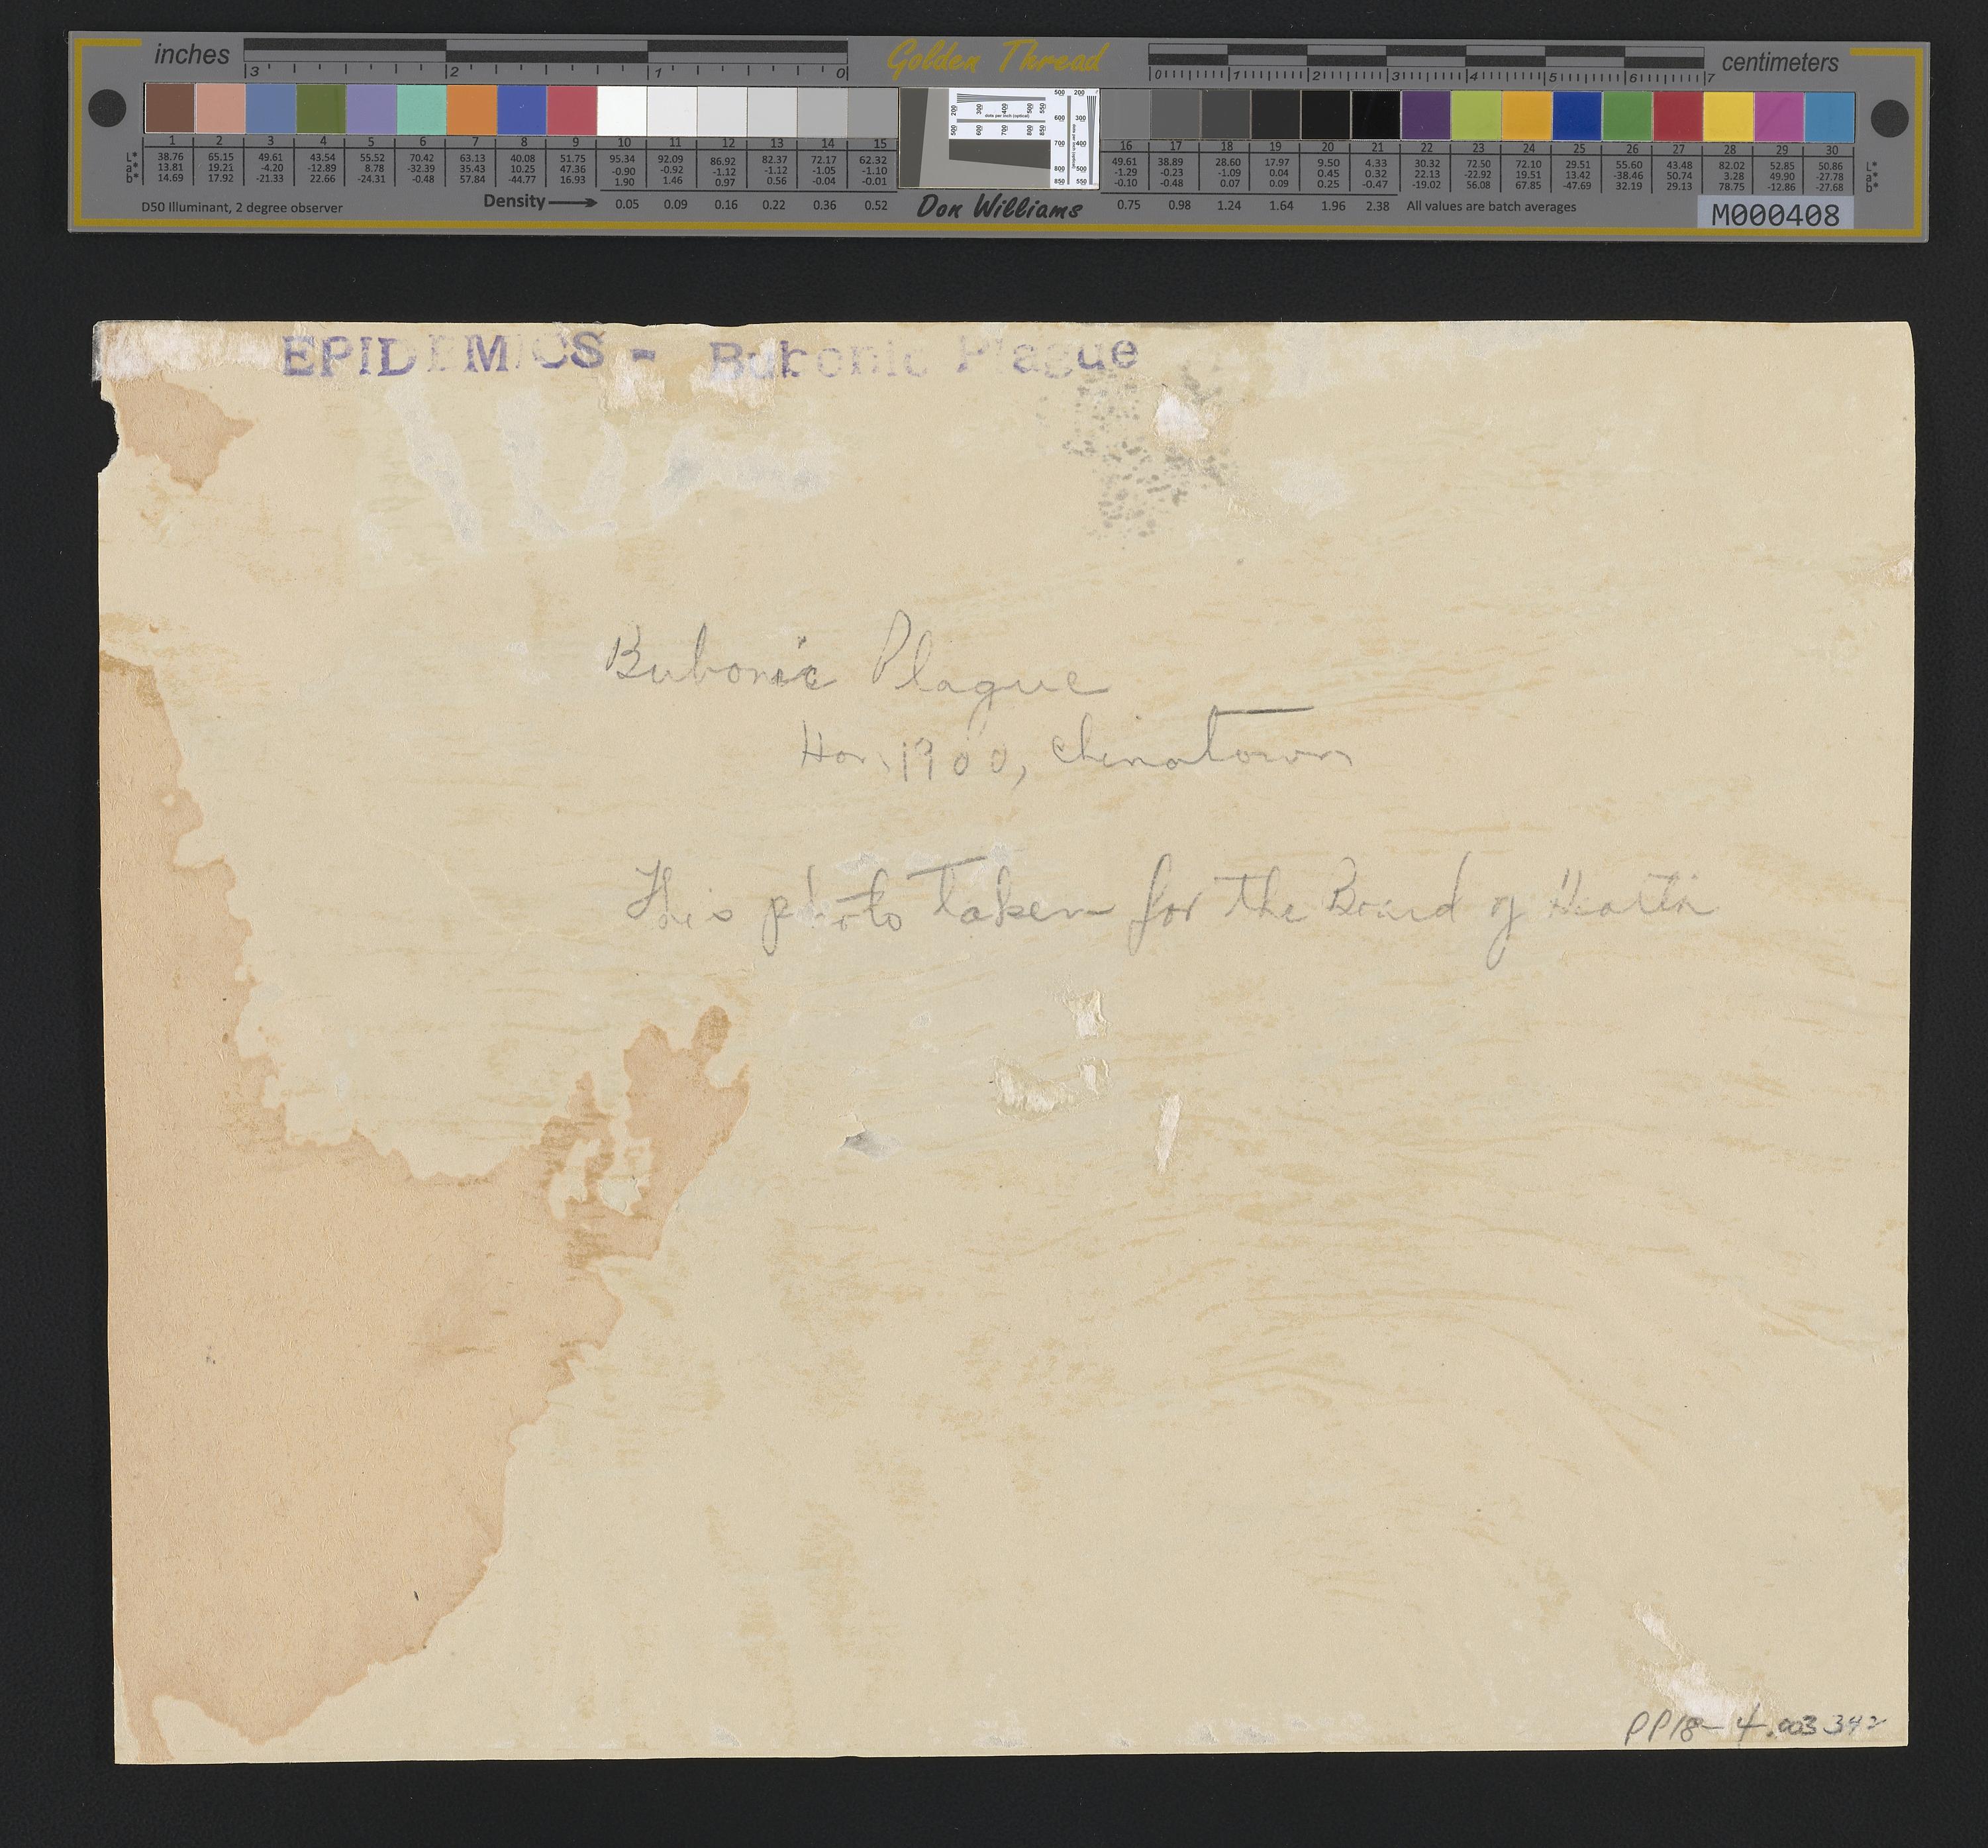 inches
3 2 1 0
Golden Thread
0 1 2 3 4 5 6 7
centimeters
1 2 3 4 5 6 7 8 9 10 11 12 13 14 15
L* 38.76 65.15 49.61 43.54 55.52 70.42 63.13 40.08 51.75 95.34 92.09 86.92 82.37 72.17 62.32
a* 13.81 19.21 -4.20 -12.89 8.78 -32.39 35.43 10.25 47.36 -0.90 -0.92 -1.12 -1.12 -1.05 -1.10
b* 14.69 17.92 -21.33 22.66 -24.31 -0.48 57.84 -44.77 16.93 1.90 1.46 0.97 0.56 -0.04 -0.01
16 17 18 19 20 21 22 23 24 25 26 27 28 29 30
49.61 38.89 28.60 17.97 9.50 4.33 30.32 72.50 72.10 29.51 55.60 43.48 82.02 52.85 50.86 L*
-1.29 -0.23 -1.09 0.04 0.45 0.32 22.13 -22.92 19.51 13.42 -38.46 50.74 3.28 49.90 -27.78 a*
-0.10 -0.48 0.07 0.09 0.25 -0.47 -19.02 56.08 67.85 -47.69 32.19 29.13 78.75 -12.86 -27.68 b*
D50 Illuminant, 2 degree observer
Density 0.05 0.09 0.16 0.22 0.36 0.52
Don Williams
0.75 0.98 1.24 1.64 1.96 2.38 All values are batch averages
M000408
EPIDEMICS - Bubonic Plague
Bubonic Plague
Hon. 1900, Chinatown
This photo taken for the Board of Health
PP18-4.003 342